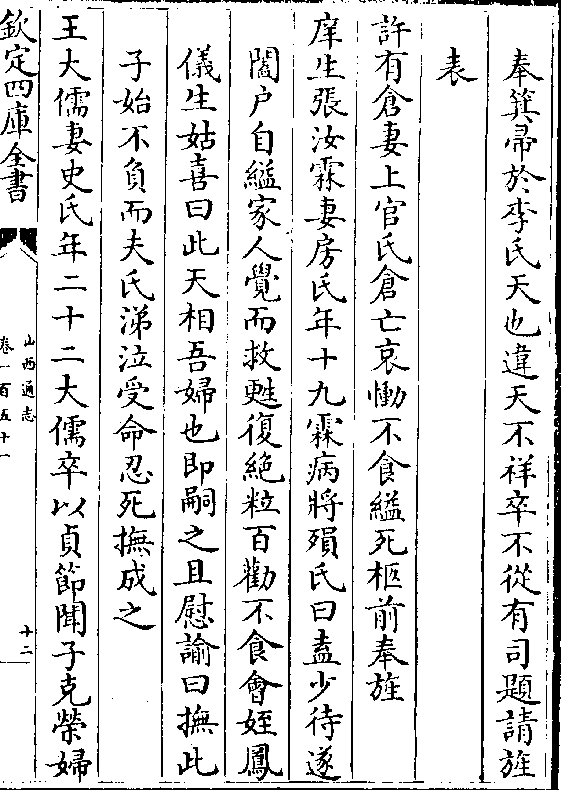 奉箕帚於李氏天也違天不祥卒不從有司題請旌
表
許有倉妻上官氏倉亡哀慟不食縊死柩前奉旌
庠生張汝霖妻房氏年十九霖病將殞氏曰盍少待遂
闔户自縊家人覺而救甦復絶粒百勸不食會姪鳳
儀生姑喜曰此天相吾婦也即嗣之且慰諭曰撫此
子始不負而夫氏涕泣受命忍死撫成之
王大儒妻史氏年二十二大儒卒以貞節聞子克榮婦
欽定四庫全書
山西通志
卷一百五十一
十二